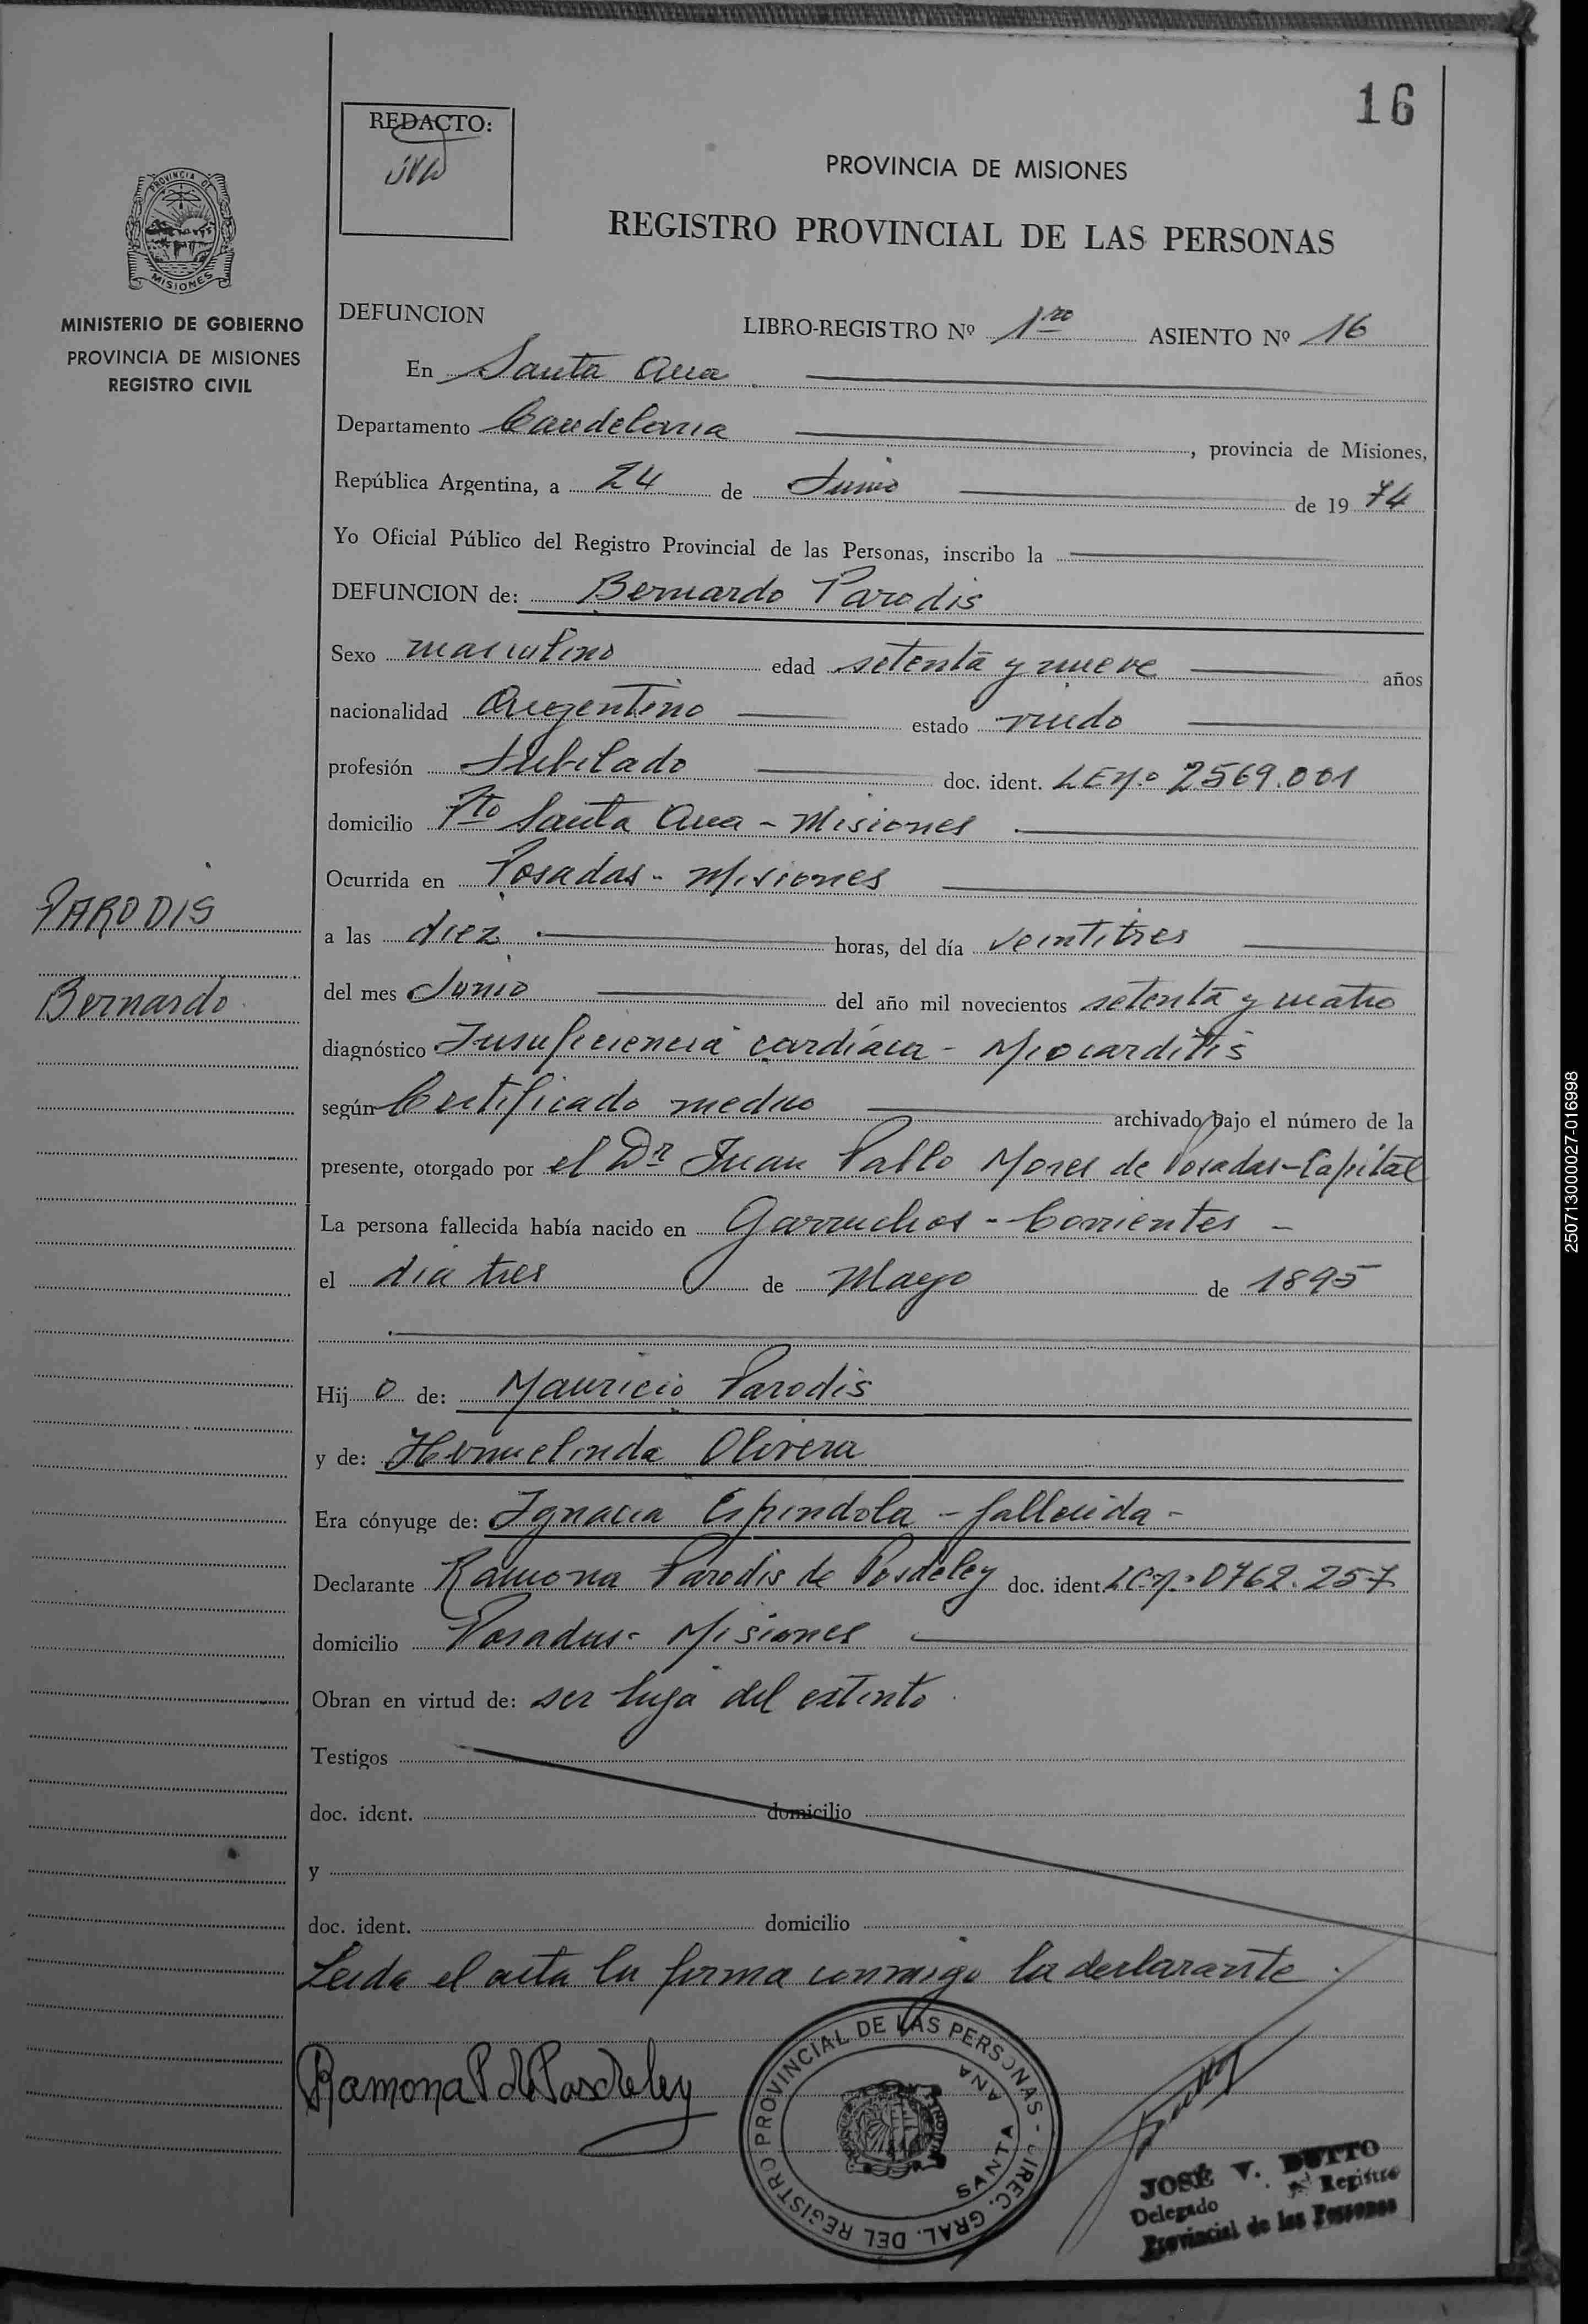 16
REDACTO:
PROVINCIA DE MISIONES
REGISTRO PROVINCIAL DE LAS PERSONAS
PROVINCIA DE
MISIONES
MINISTERIO DE GOBIERNO
PROVINCIA DE MISIONES
REGISTRO CIVIL
DEFUNCION LIBRO-REGISTRO Nº 1ro ASIENTO Nº 16
En Santa Ana
Departamento Candelaria, provincia de Misiones,
República Argentina, a 24 de Junio de 1974
Yo Oficial Público del Registro Provincial de las Personas, inscribo la
DEFUNCION de: Bernardo Parodis
Sexo masculino edad setenta y nueve años
nacionalidad Argentino estado viudo
profesión Jubilado doc. ident. LE nº 2569.001
domicilio Pto Santa Ana - Misiones
Ocurrida en Posadas - Misiones
PARODIS
a las diez horas, del día veintitres
Bernardo
del mes Junio del año mil novecientos setenta y cuatro
diagnóstico Insuficiencia cardíaca - Miocarditis
según Certificado medico archivado bajo el número de la
presente, otorgado por el Dr Juan Pablo Mores de Posadas - Capital
La persona fallecida había nacido en Garruchos - Corrientes -
el día tres de Mayo de 1895
Hijo de: Mauricio Parodis
y de: Hermelinda Olivera
Era cónyuge de: Ignacia Espindola - fallecida -
Declarante Ramona Parodis de Posdeley doc. ident. LC nº 0762.257
domicilio Posadas - Misiones
Obran en virtud de: ser hija del extinto.
Testigos
doc. ident. domicilio
y
doc. ident. domicilio
Leida el acta la firma conmigo la declarante.
Ramona P de Posdeley
DIREC. GRAL. DEL REGISTRO PROVINCIAL DE LAS PERSONAS -
SANTA ANA
JOSÉ V. DUTTO
Delegado Registro
Provincial de las Personas
250713000027-016998